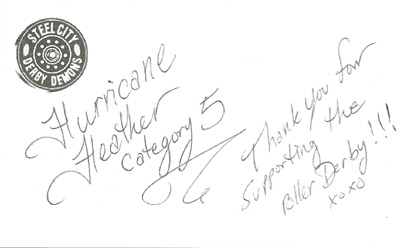 STEEL CITY
DERBY DEMONS
Hurricane
Heather
Category 5
Thank you for
supporting the
Roller Derby!!!
xoxo